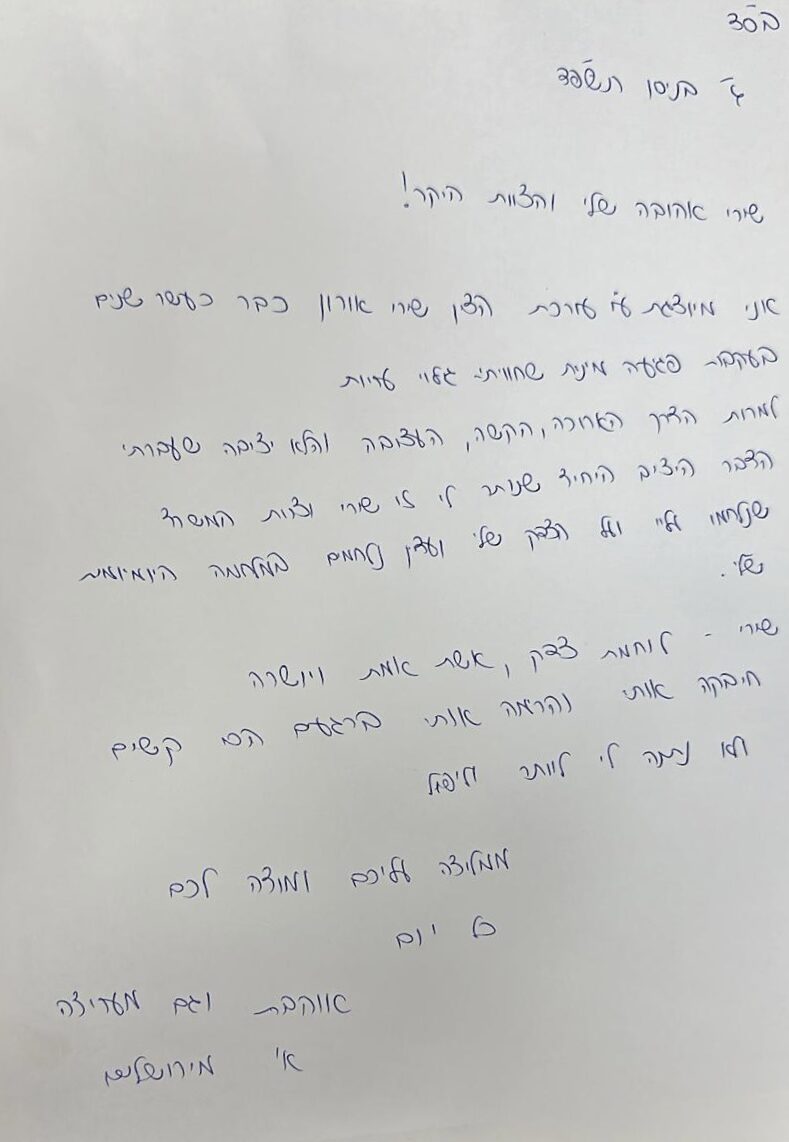 בס"ד
ג' בניסן תשפ"ד
שירי אהובה שלי והצוות היקר!
אני מיוצגת ע"י עורכת הדין שירי אורון כבר כעשר שנים
בעקבות פגיעה מינית שחוויתי: גילוי עריות
למרות הדרך הארוכה, הקשה, העצובה והלא יציבה שעברתי
הדבר היציב היחיד שנותר לי זו שירי וצוות המשרד
שנלחמו עליי ועל הצדק שלי ועדיין נלחמים במלחמה היומיומית
שלי.
שירי - לוחמת צדק, אשת אמת ויושרה
חיבקה אותי והרימה אותי ברגעים הכי קשים
ולא נתנה לי לוותר וליפול
ממליצה עליכם ומודה לכם
כל יום
אוהבת וגם מעריצה
א' מירושלים